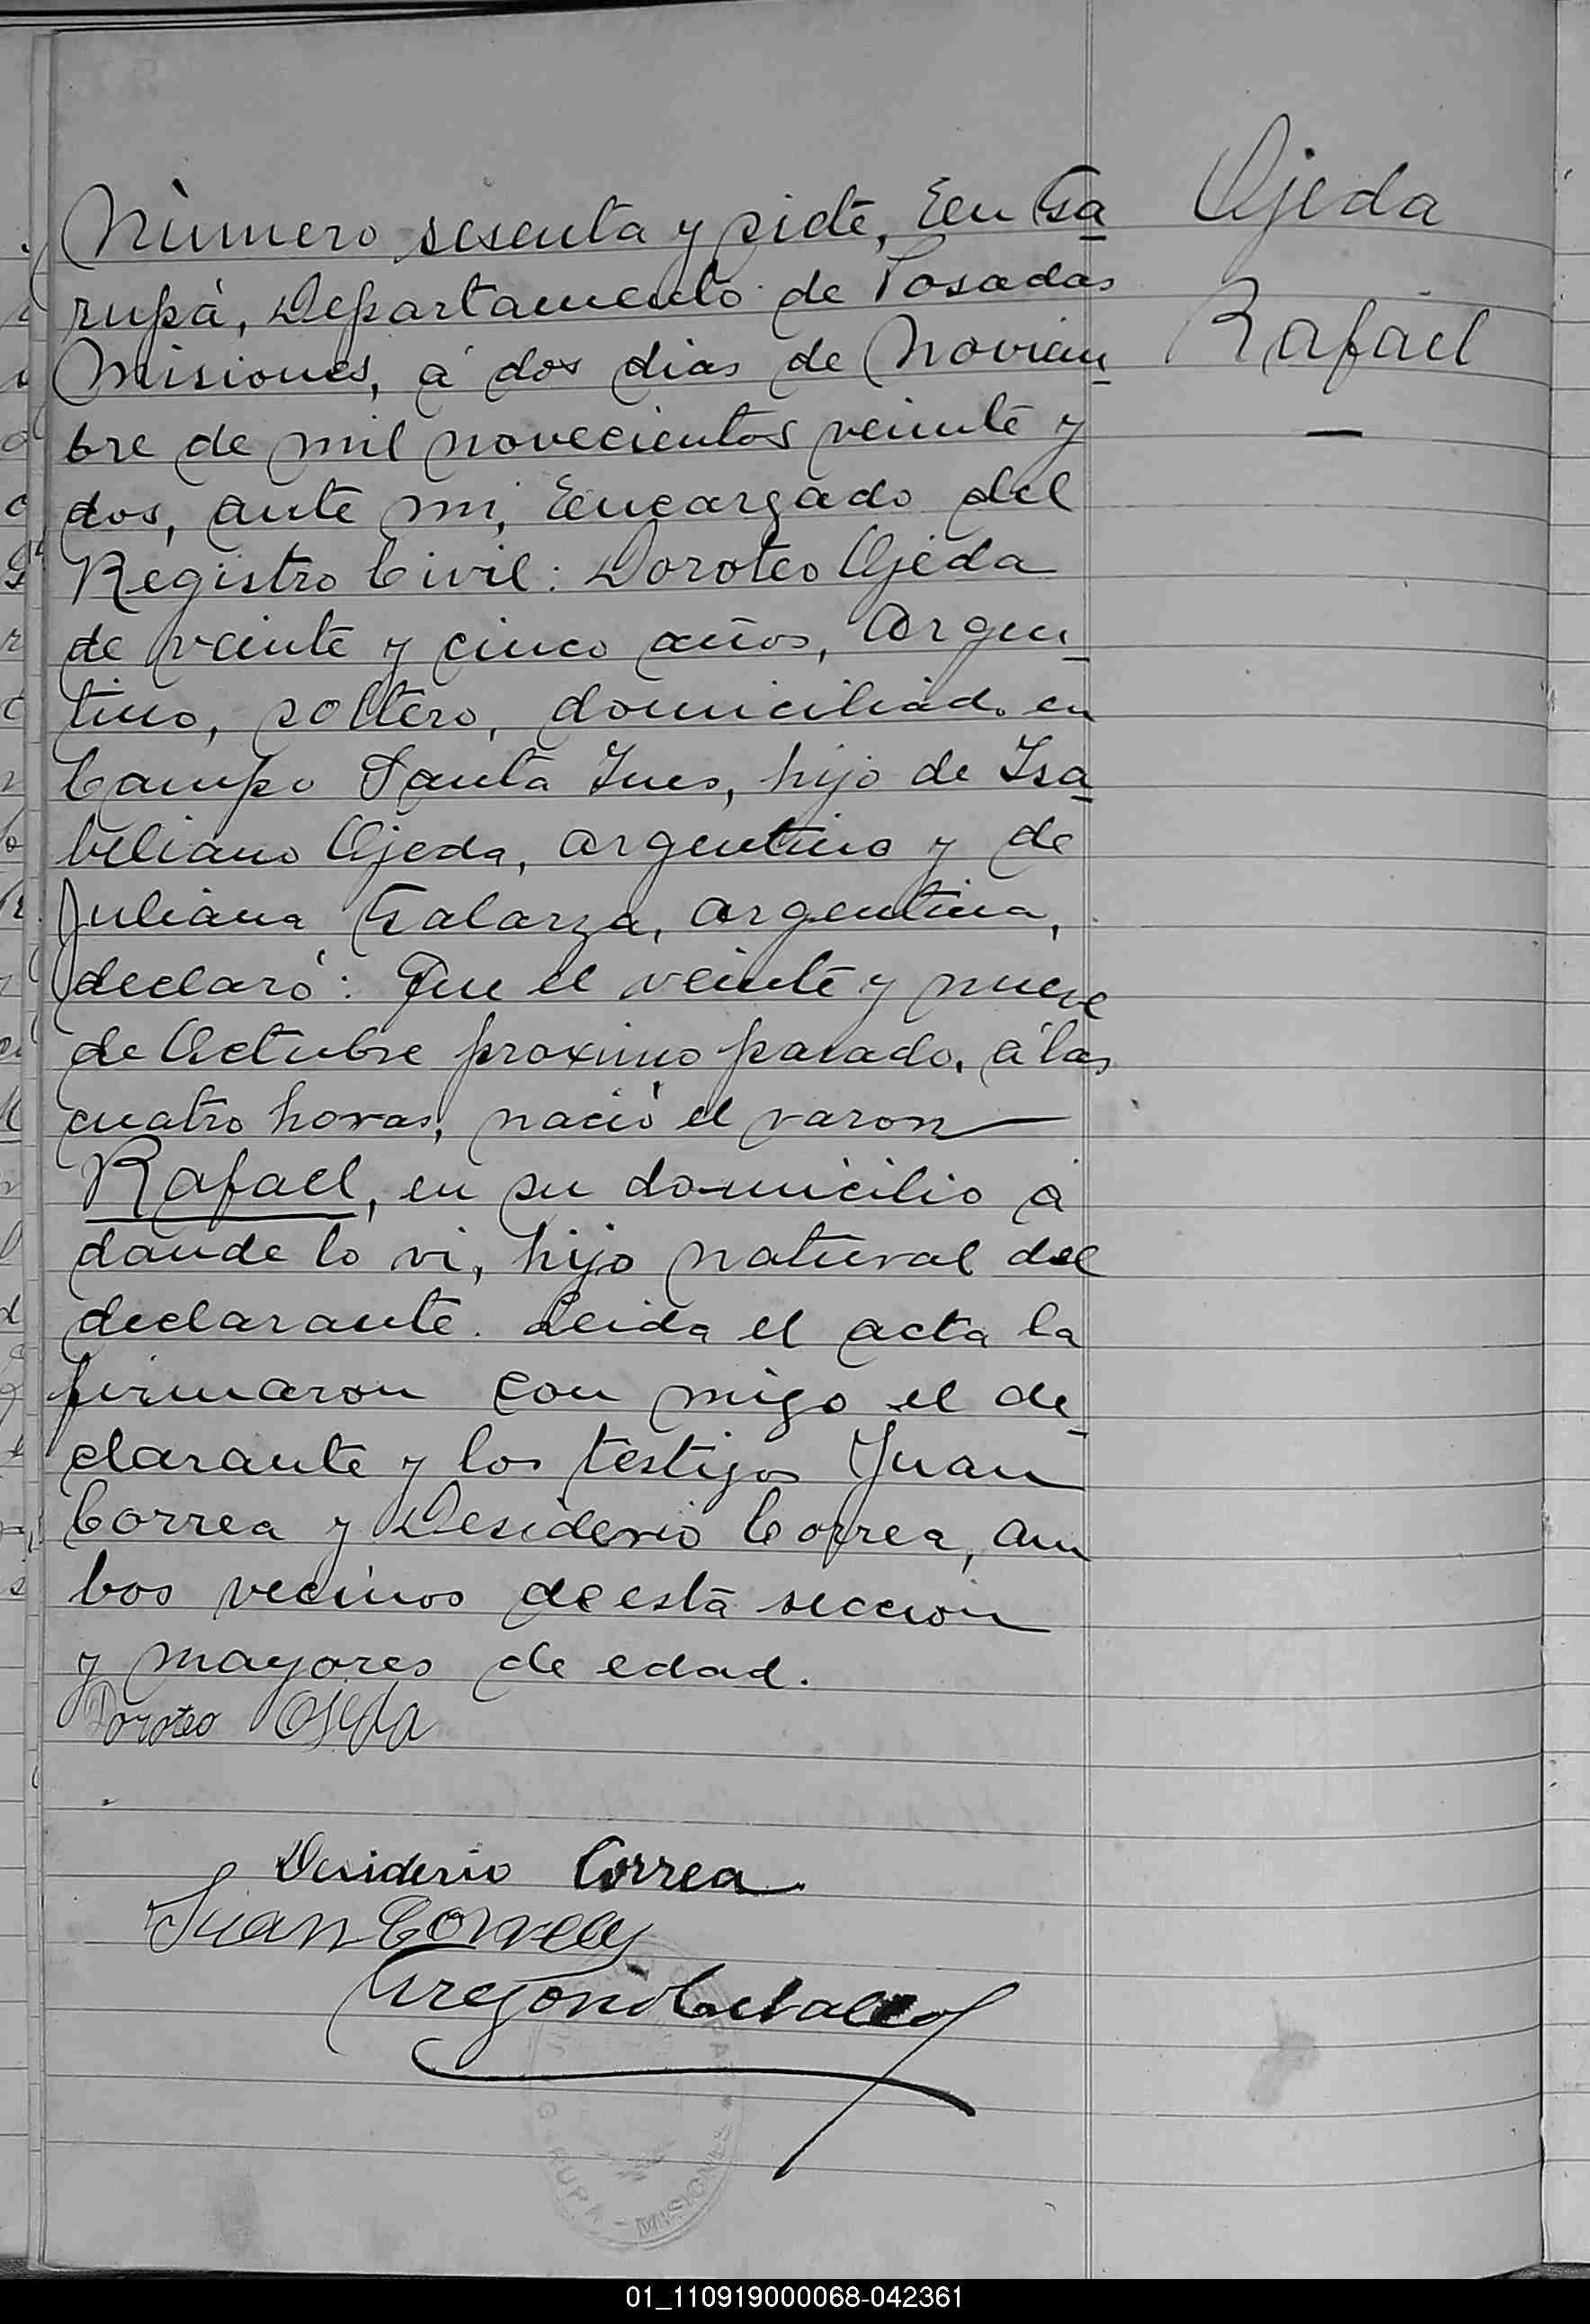 Número sesenta y siete, En Ga
Ojeda
rupá, Departamento de Posadas
Misiones, á dos dias de Noviem
Rafael
bre de mil novecientos veinte y
dos, ante mi, Encargado del
Registro Civil: Doroteo Ojeda
de veinte y cinco años, Argen
tino, soltero, domiciliado en
Campo Santa Ines, hijo de Isa
beliano Ojeda, argentino y de
Juliana Galarza, argentina,
declaró: Que el veinte y nueve
de Octubre proximo pasado, á las
cuatro horas, nació el varon
Rafael, en su domicilio á
donde lo vi, hijo natural del
declarante. Leida el acta la
firmaron con migo el de
clarante y los testigos Juan
Correa y Desiderio Correa, am
bos vecinos de esta seccion
y mayores de edad.
Doroteo Ojeda
Desiderio Correa
Juan Correa
Gregorio
GARUPA - MISIONES
01_110919000068-042361